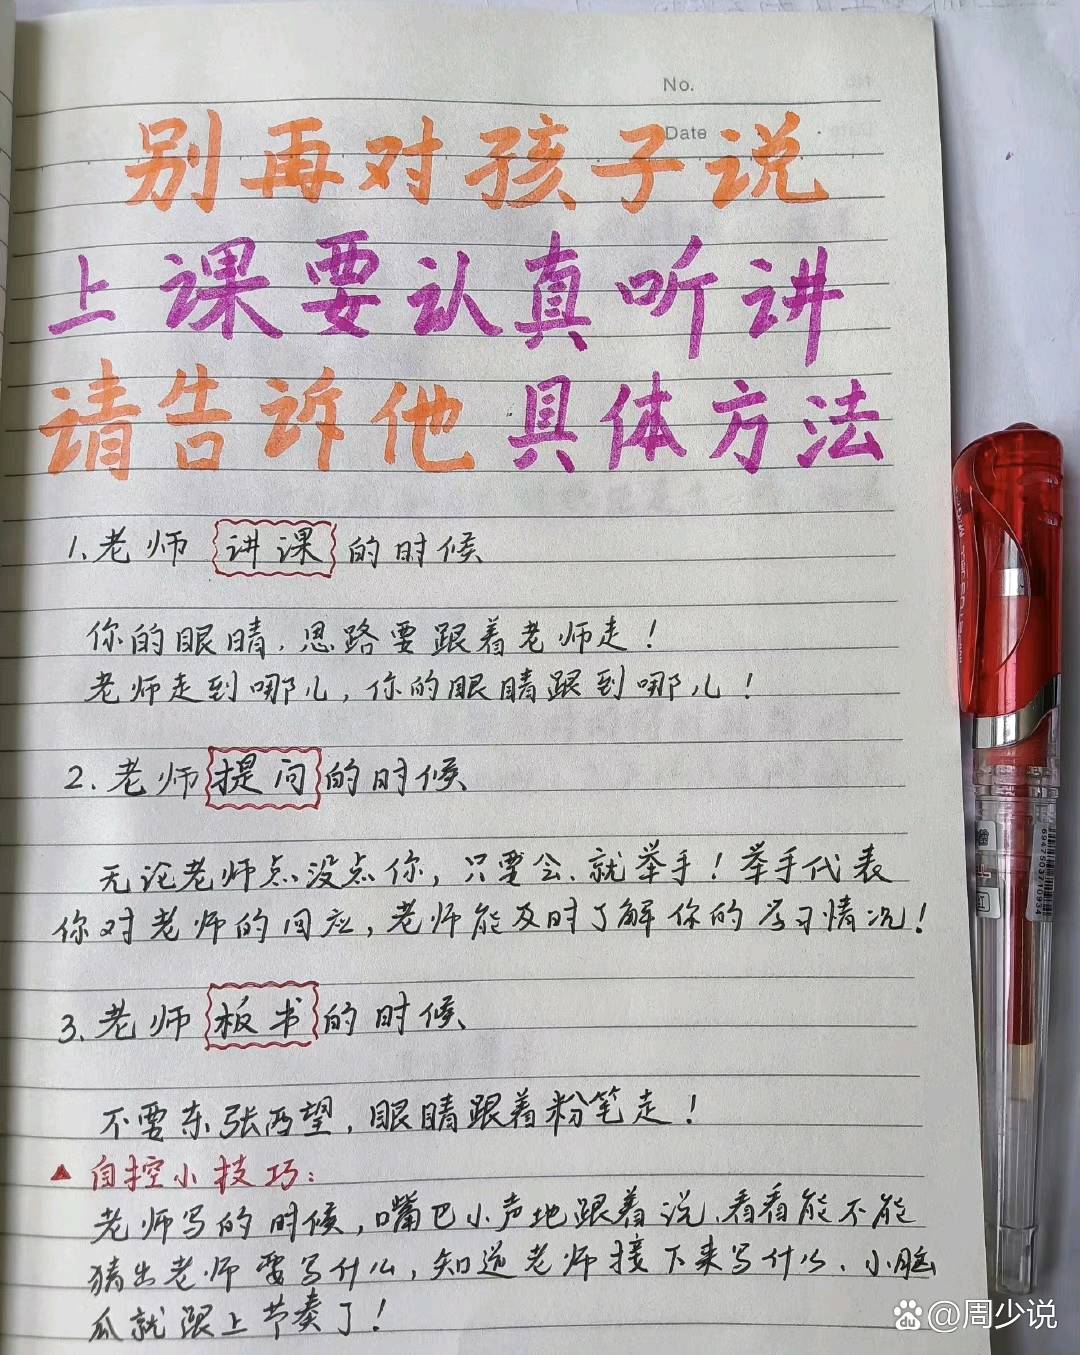 No.
Date
别再对孩子说
上课要认真听讲
请告诉他具体方法
1.老师讲课的时候
你的眼睛,思路要跟着老师走!
老师走到哪儿,你的眼睛跟到哪儿!
2.老师提问的时候
无论老师点没点你,只要会、就举手!举手代表
你对老师的回应,老师能及时了解你的学习情况!
3.老师板书的时候
不要东张西望,眼睛跟着粉笔走!
▲自控小技巧:
老师写的时候,嘴巴小声地跟着说、看看能不能
猜出老师要写什么,知道老师接下来写什么、小脑
瓜就跟上节奏了!
6947503710934
Bai du @周少说